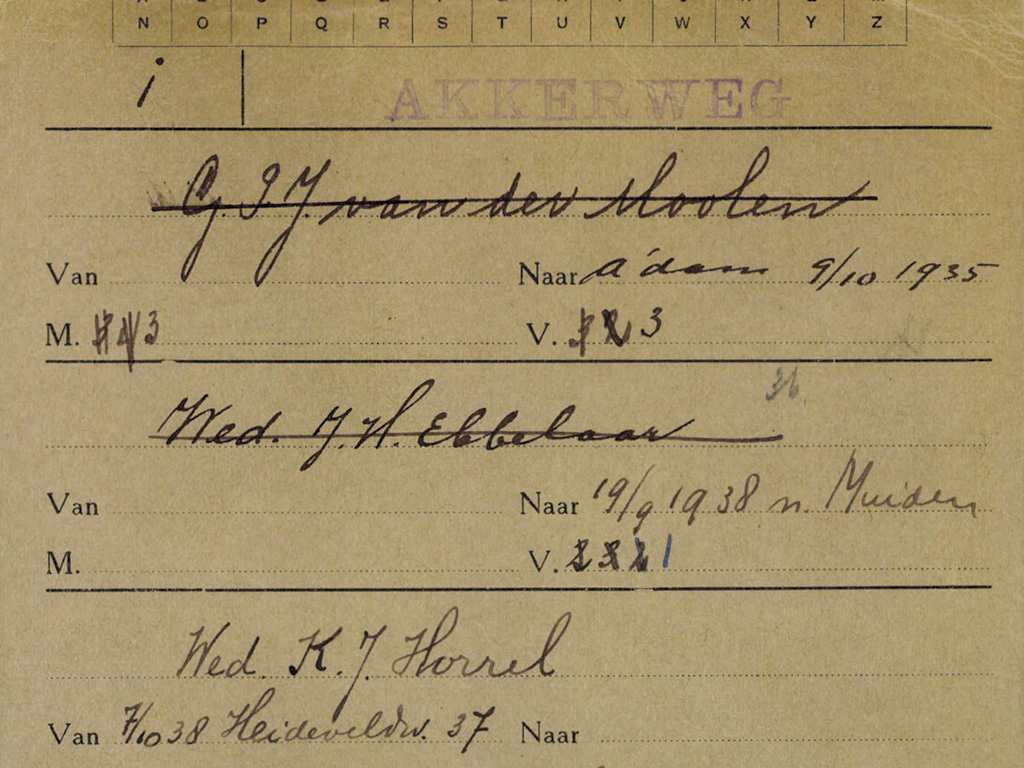 N O P Q R S T U V W X Y Z
i AKKERWEG
G. P. J. van der Moolen
Van Naar A'dam 9/10 1935
M. 3 V. 3
36
Wed. J. H. Ebbelaar
Van Naar 19/9 1938 n. Muiden
M. V. 2 3 2 1
Wed. K. J. Horrel
Van 7/10 38 Heideveldw. 37 Naar